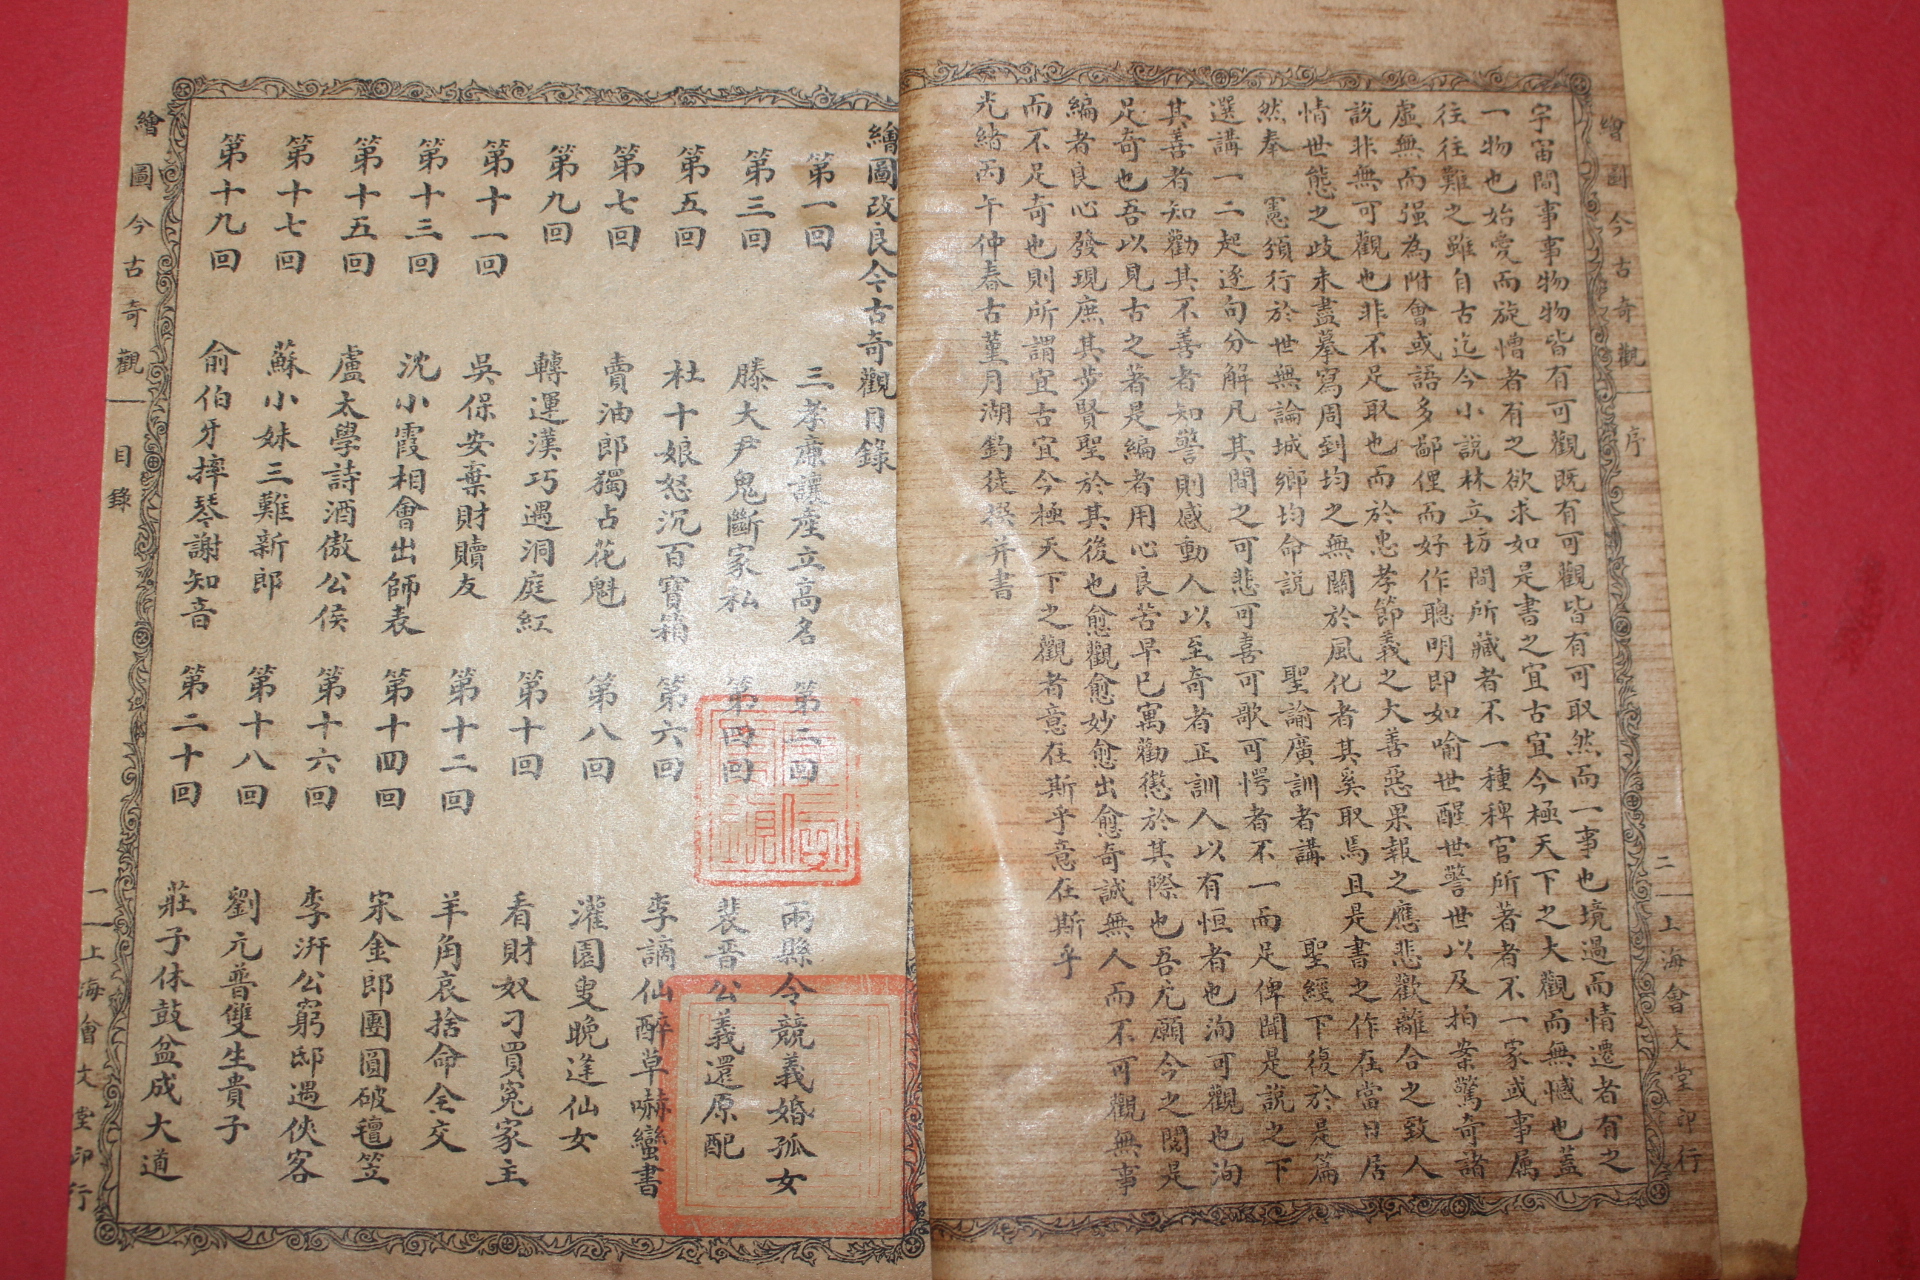 繪圖今古奇觀 序 二 上海會文堂印行
宇宙間事事物物皆有可觀既有可觀皆有可取然而一事也境過而情遷者有之
一物也始愛而旋憎者有之欲求如是書之宜古宜今極天下之大觀而無憾也蓋
往往難之雖自古迄今小說林立坊間所藏者不一種稗官所著者不一家或事屬
虛無而强為附會或語多鄙俚而好作聰明即如喻世醒世警世以及拍案驚奇諸
說非無可觀也非不足取也而於忠孝節義之大善惡果報之應悲歡離合之致人
情世態之歧未盡摹寫周到均之無關於風化者其奚取焉且是書之作在當日居
然奉 憲須行於世無論城鄉均命説 聖諭廣訓者講 聖經下復於是篇
選講一二起逐句分解凡其間之可悲可喜可歌可愕者不一而足俾聞是説之下
其善者知勸其不善者知警則感動人以至奇者正訓人以有恒者也洵可觀也洵
足奇也吾以見古之著是編者用心良苦早已寓勸懲於其際也吾尤願今之閱是
編者良心發現庶其步賢聖於其後也愈觀愈妙愈出愈奇誠無人而不可觀無事
而不足奇也則所謂宜古宜今極天下之觀者意在斯乎意在斯乎
光緒丙午仲春古菫月湖釣徒撰并書
繪圖改良今古奇觀目錄
第一回 三孝廉讓產立高名 第二回 兩縣令競義婚孤女
第三回 滕大尹鬼斷家私 第四回 裴晋公義還原配
第五回 杜十娘怒沉百寶箱 第六回 李謫仙醉草嚇蠻書
第七回 賣油郎獨占花魁 第八回 灌園叟晚逢仙女
第九回 轉運漢巧遇洞庭紅 第十回 看財奴刁買冤家主
第十一回 吳保安棄財贖友 第十二回 羊角哀捨命全交
第十三回 沈小霞相會出師表 第十四回 宋金郎團圓破氊笠
第十五回 盧太學詩酒傲公侯 第十六回 李汧公窮邸遇俠客
第十七回 蘇小妹三難新郎 第十八回 劉元普雙生貴子
第十九回 俞伯牙摔琴謝知音 第二十回 莊子休鼓盆成大道
繪圖今古奇觀 目錄 一 上海會文堂印行